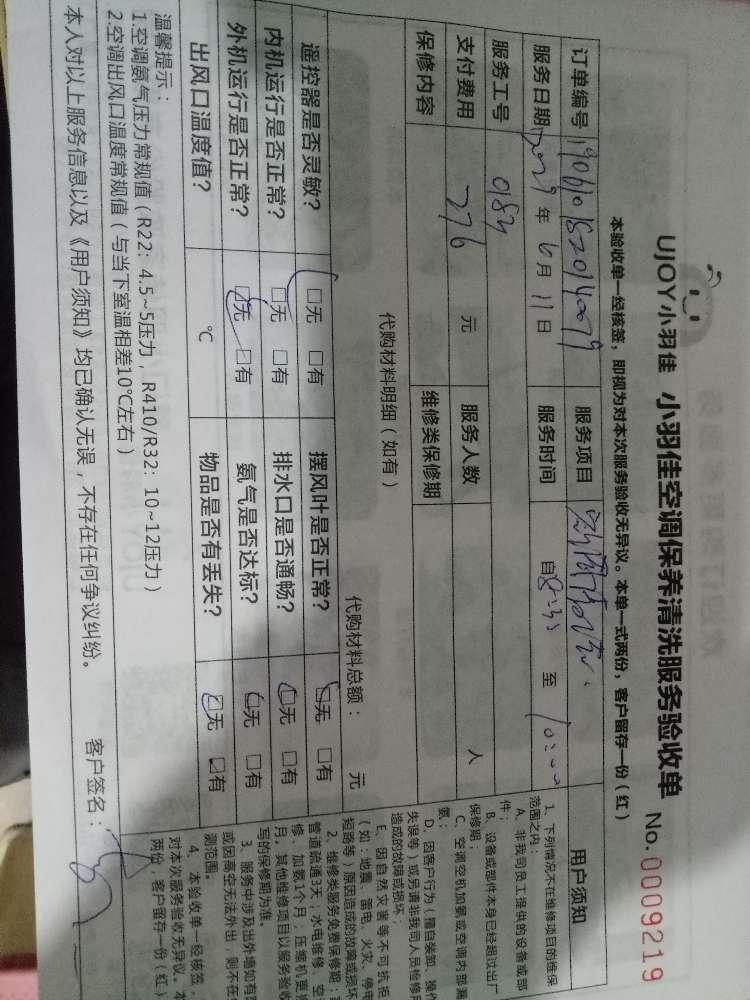 UJOY小羽佳 小羽佳空调保养清洗服务验收单 No.0009219
本验收单一经核签，即视为对本次服务验收无异议。本单一式两份，客户留存一份（红）
订单编号 服务项目 用户须知
服务日期 年 6月11日 服务时间 自8:35 至 10:00
服务工号 0184
支付费用 276 元 服务人数 人
保修内容 维修类保修期
代购材料明细（如有） 代购材料总额： 元
遥控器是否灵敏？ □无 □有 摆风叶是否正常？ □无 □有
内机运行是否正常？ □无 □有 排水口是否通畅？ □无 □有
外机运行是否正常？ □无 □有 氨气是否达标？ □无 □有
出风口温度值？ ℃ 物品是否有丢失？ □无 ☑有
温馨提示：
1.空调氨气压力常规值（R22：4.5~5压力，R410/R32：10~12压力）
2.空调出风口温度常规值（与当下室温相差10℃左右）
本人对以上服务信息以及《用户须知》均已确认无误，不存在任何争议纠纷。 客户签名：
1、下列情况不在维修项目的维保
范围之内：
A、非我司员工提供的设备或部
件；
B、设备或部件本身已经超过出厂
保修期；
C、空调空机加氨或空调内部漏
氨；
D、因客户行为（擅自装卸、操作
失误等）或另请非我司人员检修所
造成的故障或损坏；
E、因自然灾害等不可抗拒
（如：地震、雷电、火灾、停电
短路等）原因造成的故障或损坏
2、维修类服务免费保修期：
管道疏通3天；水电维修、空
修、加氨1个月；压缩机更换
月。其他维修项目以服务验收
写的保修期为准。
3、服务中涉及出外墙如有
或因高空无法外出，则不在
测范围。
4、本验收单一经核签，
对本次服务验收无异议。本
两份，客户留存一份（红）